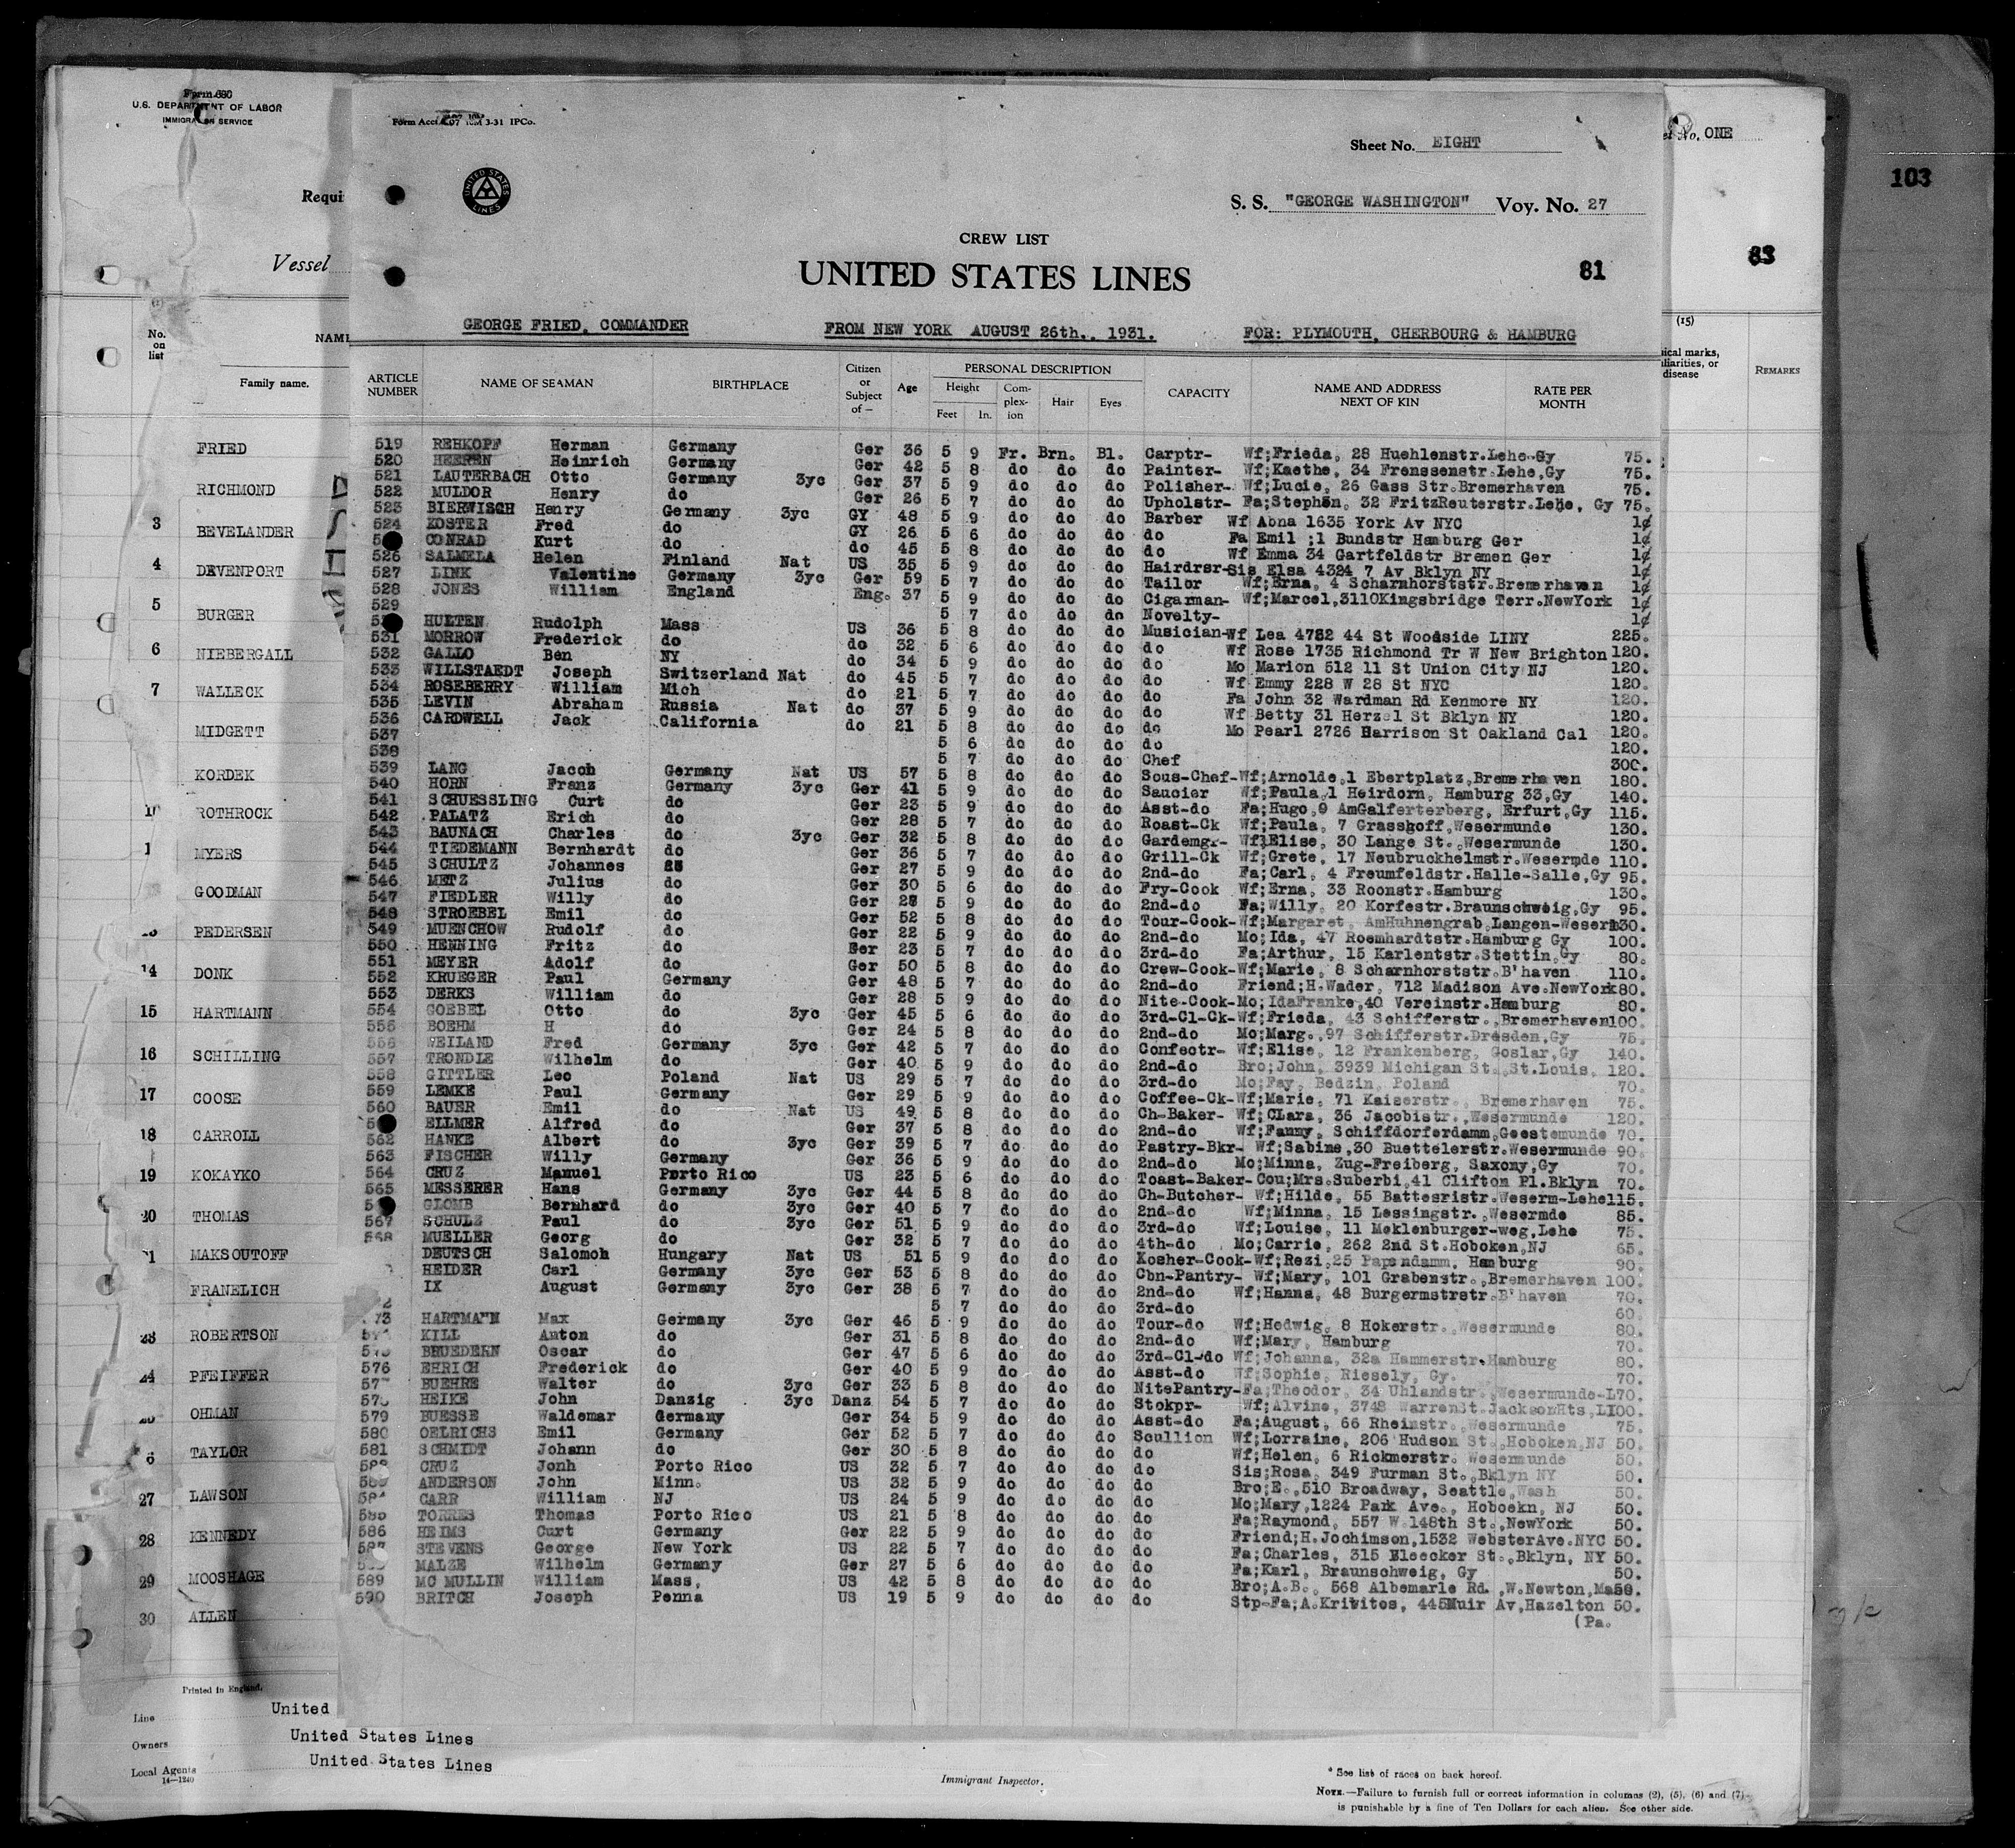 Form 680
U.S. DEPARTMENT OF LABOR
IMMIGRATION SERVICE
Form Acct. 3-31 IPCo.
Sheet No. EIGHT
No. ONE
103
Requi
UNITED STATES LINES
S. S. "GEORGE WASHINGTON" Voy. No. 27
CREW LIST
Vessel
UNITED STATES LINES
81
83
GEORGE FRIED, COMMANDER FROM NEW YORK AUGUST 26th., 1931. FOR: PLYMOUTH, CHERBOURG & HAMBURG
(15)
No. on list
NAME
Family name.
ical marks, liarities, or disease
REMARKS
ARTICLE NUMBER NAME OF SEAMAN BIRTHPLACE Citizen or Subject of — Age PERSONAL DESCRIPTION Height Feet In. Complexion Hair Eyes CAPACITY NAME AND ADDRESS NEXT OF KIN RATE PER MONTH
519 REHKOPF Herman Germany Ger 36 5 9 Fr. Brn. Bl. Carptr- Wf;Frieda, 28 Huehlenstr.Lehe Gy 75.
520 HEEREN Heinrich Germany Ger 42 5 8 do do do Painter- Wf;Kaethe, 34 Frenssenstr.Lehe,Gy 75.
521 LAUTERBACH Otto Germany 3yc Ger 37 5 9 do do do Polisher- Wf;Lucie, 26 Gass Str.Bremerhaven 75.
522 MULDOR Henry do Ger 26 5 7 do do do Upholstr- Fa;Stephen, 32 FritzReuterstr.Lehe, Gy 75.
523 BIERWISCH Henry Germany 3yc GY 48 5 9 do do do Barber Wf Abna 1635 York Av NYC 1¢
524 KOSTER Fred do GY 26 5 6 do do do do Fa Emil ;1 Bundstr Hamburg Ger 1¢
5 CONRAD Kurt do do 45 5 8 do do do do Wf Emma 34 Gartfeldstr Bremen Ger 1¢
526 SALMELA Helen Finland Nat US 35 5 9 do do do Hairdrsr-Sis Elsa 4324 7 Av Bklyn NY 1¢
527 LINK Valentine Germany 3yc Ger 59 5 7 do do do Tailor Wf;Erna, 4 Scharnhorststr.Bremerhaven 1¢
528 JONES William England Eng. 37 5 9 do do do Cigarman- Wf;Marcel,3110Kingsbridge Terr.NewYork 1¢
529 5 7 do do do Novelty- 1¢
5 HULTEN Rudolph Mass US 36 5 8 do do do Musician-Wf Lea 4752 44 St Woodside LINY 225.
531 MORROW Frederick do do 32 5 6 do do do do Wf Rose 1735 Richmond Tr W New Brighton 120.
532 GALLO Ben NY do 34 5 9 do do do do Mo Marion 512 11 St Union City NJ 120.
533 WILLSTAEDT Joseph Switzerland Nat do 45 5 7 do do do do Wf Emmy 228 W 28 St NYC 120.
534 ROSEBERRY William Mich do 21 5 7 do do do do Fa John 32 Wardman Rd Kenmore NY 120.
535 LEVIN Abraham Russia Nat do 37 5 9 do do do do Wf Betty 31 Herzel St Bklyn NY 120.
536 CARDWELL Jack California do 21 5 8 do do do do Mo Pearl 2726 Harrison St Oakland Cal 120.
537 5 6 do do do do 120.
538 5 7 do do do Chef 300.
539 LANG Jacob Germany Nat US 57 5 8 do do do Sous-Chef-Wf;Arnolde,1 Ebertplatz,Bremerhaven 180.
540 HORN Franz Germany 3yc Ger 41 5 9 do do do Saucier Wf;Paula,1 Heirdorn, Hamburg 33,Gy 140.
541 SCHUESSLING Curt do Ger 23 5 9 do do do Asst-do Fa;Hugo,9 AmGalferterberg, Erfurt,Gy 115.
542 PALATZ Erich do Ger 28 5 7 do do do Roast-Ck Wf;Paula, 7 Grasshoff,Wesermunde 130.
543 BAUNACH Charles do 3yc Ger 32 5 8 do do do Gardemgr- Wf;Elise, 30 Lange St.,Wesermunde 130.
544 TIEDEMANN Bernhardt do Ger 36 5 7 do do do Grill-Ck Wf;Grete, 17 Neubruckhelmstr.Wesermde 110.
545 SCHULTZ Johannes Ger 27 5 9 do do do 2nd-do Fa;Carl, 4 Freumfeldstr.Halle-Salle,Gy 95.
546 METZ Julius do Ger 30 5 6 do do do Fry-Cook Wf;Erna, 33 Roonstr.Hamburg 130.
547 FIEDLER Willy do Ger 28 5 9 do do do 2nd-do Fa;Willy, 20 Korfestr.Braunschweig,Gy 95.
548 STROEBEL Emil do Ger 52 5 8 do do do Tour-Cook-Wf;Margaret, AmHuhnengrab,Langen-Weserm 130.
549 MUENCHOW Rudolf do Ger 22 5 9 do do do 2nd-do Mo;Ida, 47 Roemhardtstr.Hamburg Gy 100.
550 HENNING Fritz do Ger 23 5 7 do do do 3rd-do Fa;Arthur, 15 Karlentstr.Stettin,Gy 80.
551 MEYER Adolf do Ger 50 5 8 do do do Crew-Cook-Wf;Marie, 8 Scharnhorststr.B'haven 110.
552 KRUEGER Paul Germany Ger 48 5 7 do do do 2nd-do Friend;H.Wader, 712 Madison Ave.NewYork 80.
553 DERKS William do Ger 28 5 9 do do do Nite-Cook-Mo;IdaFranke,40 Vereinstr.Hamburg 80.
554 GOEBEL Otto do 3yc Ger 45 5 6 do do do 3rd-Cl-Ck-Wf;Frieda, 43 Schifferstr.,Bremerhaven 100.
555 BOEHM H do Ger 24 5 8 do do do 2nd-do Mo;Marg.,97 Schifferstr.Dresden,Gy 75.
556 WEILAND Fred Germany 3yc Ger 42 5 7 do do do Confectr- Wf;Elise, 12 Frankenberg, Goslar,Gy 140.
557 TRONDLE Wilhelm do Ger 40 5 9 do do do 2nd-do Bro;John, 3939 Michigan St.,St.Louis, 120.
558 GITTLER Leo Poland Nat US 29 5 7 do do do 3rd-do Mo;Fay, Bedzin, Poland 70.
559 LEMKE Paul Germany Ger 29 5 9 do do do Coffee-Ck-Wf;Marie, 71 Kaiserstr., Bremerhaven 75.
560 BAUER Emil do Nat US 49 5 8 do do do Ch-Baker- Wf;CLara, 36 Jacobistr.,Wesermunde 120.
5 ELLMER Alfred do Ger 37 5 8 do do do 2nd-do Wf;Fanny, Schiffdorferdamm,Geestemunde 70.
562 HANKE Albert do 3yc Ger 39 5 7 do do do Pastry-Bkr- Wf;Sabine,30 Buettelerstr.Wesermunde 90.
563 FISCHER Willy Germany Ger 36 5 9 do do do 2nd-do Mo;Minna, Zug-Freiberg, Saxony,Gy 70.
564 CRUZ Manuel Porto Rico US 23 5 6 do do do Toast-Baker-Cou;Mrs.Suberbi,41 Clifton Pl.Bklyn 70.
565 MESSERER Hans Germany 3yc Ger 44 5 8 do do do Ch-Butcher- Wf;Hilde, 55 Battesristr.Weserm-Lehe 115.
5 GLOMB Bernhard do 3yc Ger 40 5 7 do do do 2nd-do Wf;Minna, 15 Lessingstr.,Wesermde 85.
567 SCHULZ Paul do 3yc Ger 51 5 9 do do do 3rd-do Wf;Louise, 11 Meklenburger-weg,Lehe 75.
568 MUELLER Georg do Ger 32 5 7 do do do 4th-do Mo;Carrie, 262 2nd St.Hoboken,NJ 65.
DEUTSCH Salomoh Hungary Nat US 51 5 9 do do do Kosher-Cook-Wf;Rezi,25 Papendamm, Hamburg 90.
HEIDER Carl Germany 3yc Ger 53 5 8 do do do Cbn-Pantry- Wf;Mary, 101 Grabenstr.,Bremerhaven 100.
IX August Germany 3yc Ger 38 5 7 do do do 2nd-do Wf;Hanna, 48 Burgermstrstr.B'haven 70.
2 5 7 do do do 3rd-do 60.
73 HARTMANN Max Germany 3yc Ger 46 5 9 do do do Tour-do Wf;Hedwig, 8 Hokerstr.,Wesermunde 80.
57 KILL Anton do Ger 31 5 8 do do do 2nd-do Wf;Mary, Hamburg 70.
575 BRUEDERN Oscar do Ger 47 5 6 do do do 3rd-Cl-do Wf;Johanna, 32a Hammerstr.Hamburg 80.
576 EHRICH Frederick do Ger 40 5 9 do do do Asst-do Wf;Sophie, Riesely, Gy. 70.
57 BUEHRE Walter do 3yc Ger 33 5 8 do do do NitePantry-Fa;Theodor, 34 Uhlandstr.,Wesermunde-L 70.
578 HEIKE John Danzig 3yc Danz 54 5 7 do do do Stokpr- Wf;Alvine, 3748 WarrenSt.JacksonHts,LI 100.
579 BUESSE Waldemar Germany Ger 34 5 9 do do do Asst-do Fa;August, 66 Rheinstr.,Wesermunde 75.
580 OELRICHS Emil Germany Ger 52 5 7 do do do Scullion Wf;Lorraine, 206 Hudson St.,Hoboken,NJ 50.
581 SCHMIDT Johann do Ger 30 5 8 do do do do Wf;Helen, 6 Rickmerstr. Wesermunde 50.
582 CRUZ Jonh Porto Rico US 32 5 7 do do do do Sis;Rosa, 349 Furman St.,Bklyn NY 50.
583 ANDERSON John Minn. US 32 5 9 do do do do Bro;E.,510 Broadway, Seattle,Wash 50.
584 CARR William NJ US 24 5 9 do do do do Mo;Mary,1224 Park Ave., Hoboekn, NJ 50.
585 TORRES Thomas Porto Rico US 21 5 8 do do do do Fa;Raymond, 557 W 148th St.,NewYork 50.
586 HEIMS Curt Germany Ger 22 5 9 do do do do Friend;H.Jochimson,1532 WebsterAve.NYC 50.
587 STEVENS George New York US 22 5 7 do do do do Fa;Charles, 315 Bleecker St.,Bklyn, NY 50.
MALZE Wilhelm Germany Ger 27 5 6 do do do do Fa;Karl, Braunschweig, Gy 50.
589 MC MULLIN William Mass, US 42 5 8 do do do do Bro;A.B., 568 Albemarle Rd.,W.Newton,Mass 50.
590 BRITCH Joseph Penna US 19 5 9 do do do do Stp-Fa;A.Krivitos, 445Muir Av,Hazelton 50.
(Pa.
FRIED
RICHMOND
3 BEVELANDER
4 DEVENPORT
5 BURGER
6 NIEBERGALL
7 WALLECK
MIDGETT
KORDEK
1 ROTHROCK
1 MYERS
GOODMAN
PEDERSEN
14 DONK
15 HARTMANN
16 SCHILLING
17 COOSE
18 CARROLL
19 KOKAYKO
20 THOMAS
21 MAKSOUTOFF
FRANELICH
23 ROBERTSON
24 PFEIFFER
OHMAN
6 TAYLOR
27 LAWSON
28 KENNEDY
29 MOOSHAGE
30 ALLEN
Printed in England.
Line United
Owners United States Lines
Local Agents United States Lines
14—1240
Immigrant Inspector.
* See list of races on back hereof.
NOTE.—Failure to furnish full or correct information in columns (2), (5), (6) and (7)
is punishable by a fine of Ten Dollars for each alien. See other side.